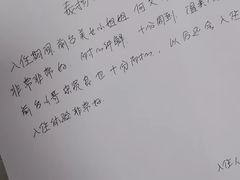 表扬
入住期间前台美女小姐姐 何文
非常非常的 耐心讲解 十分周到
前台小哥 也十分耐心, 以后还会入住
入住体验非常好
入住人